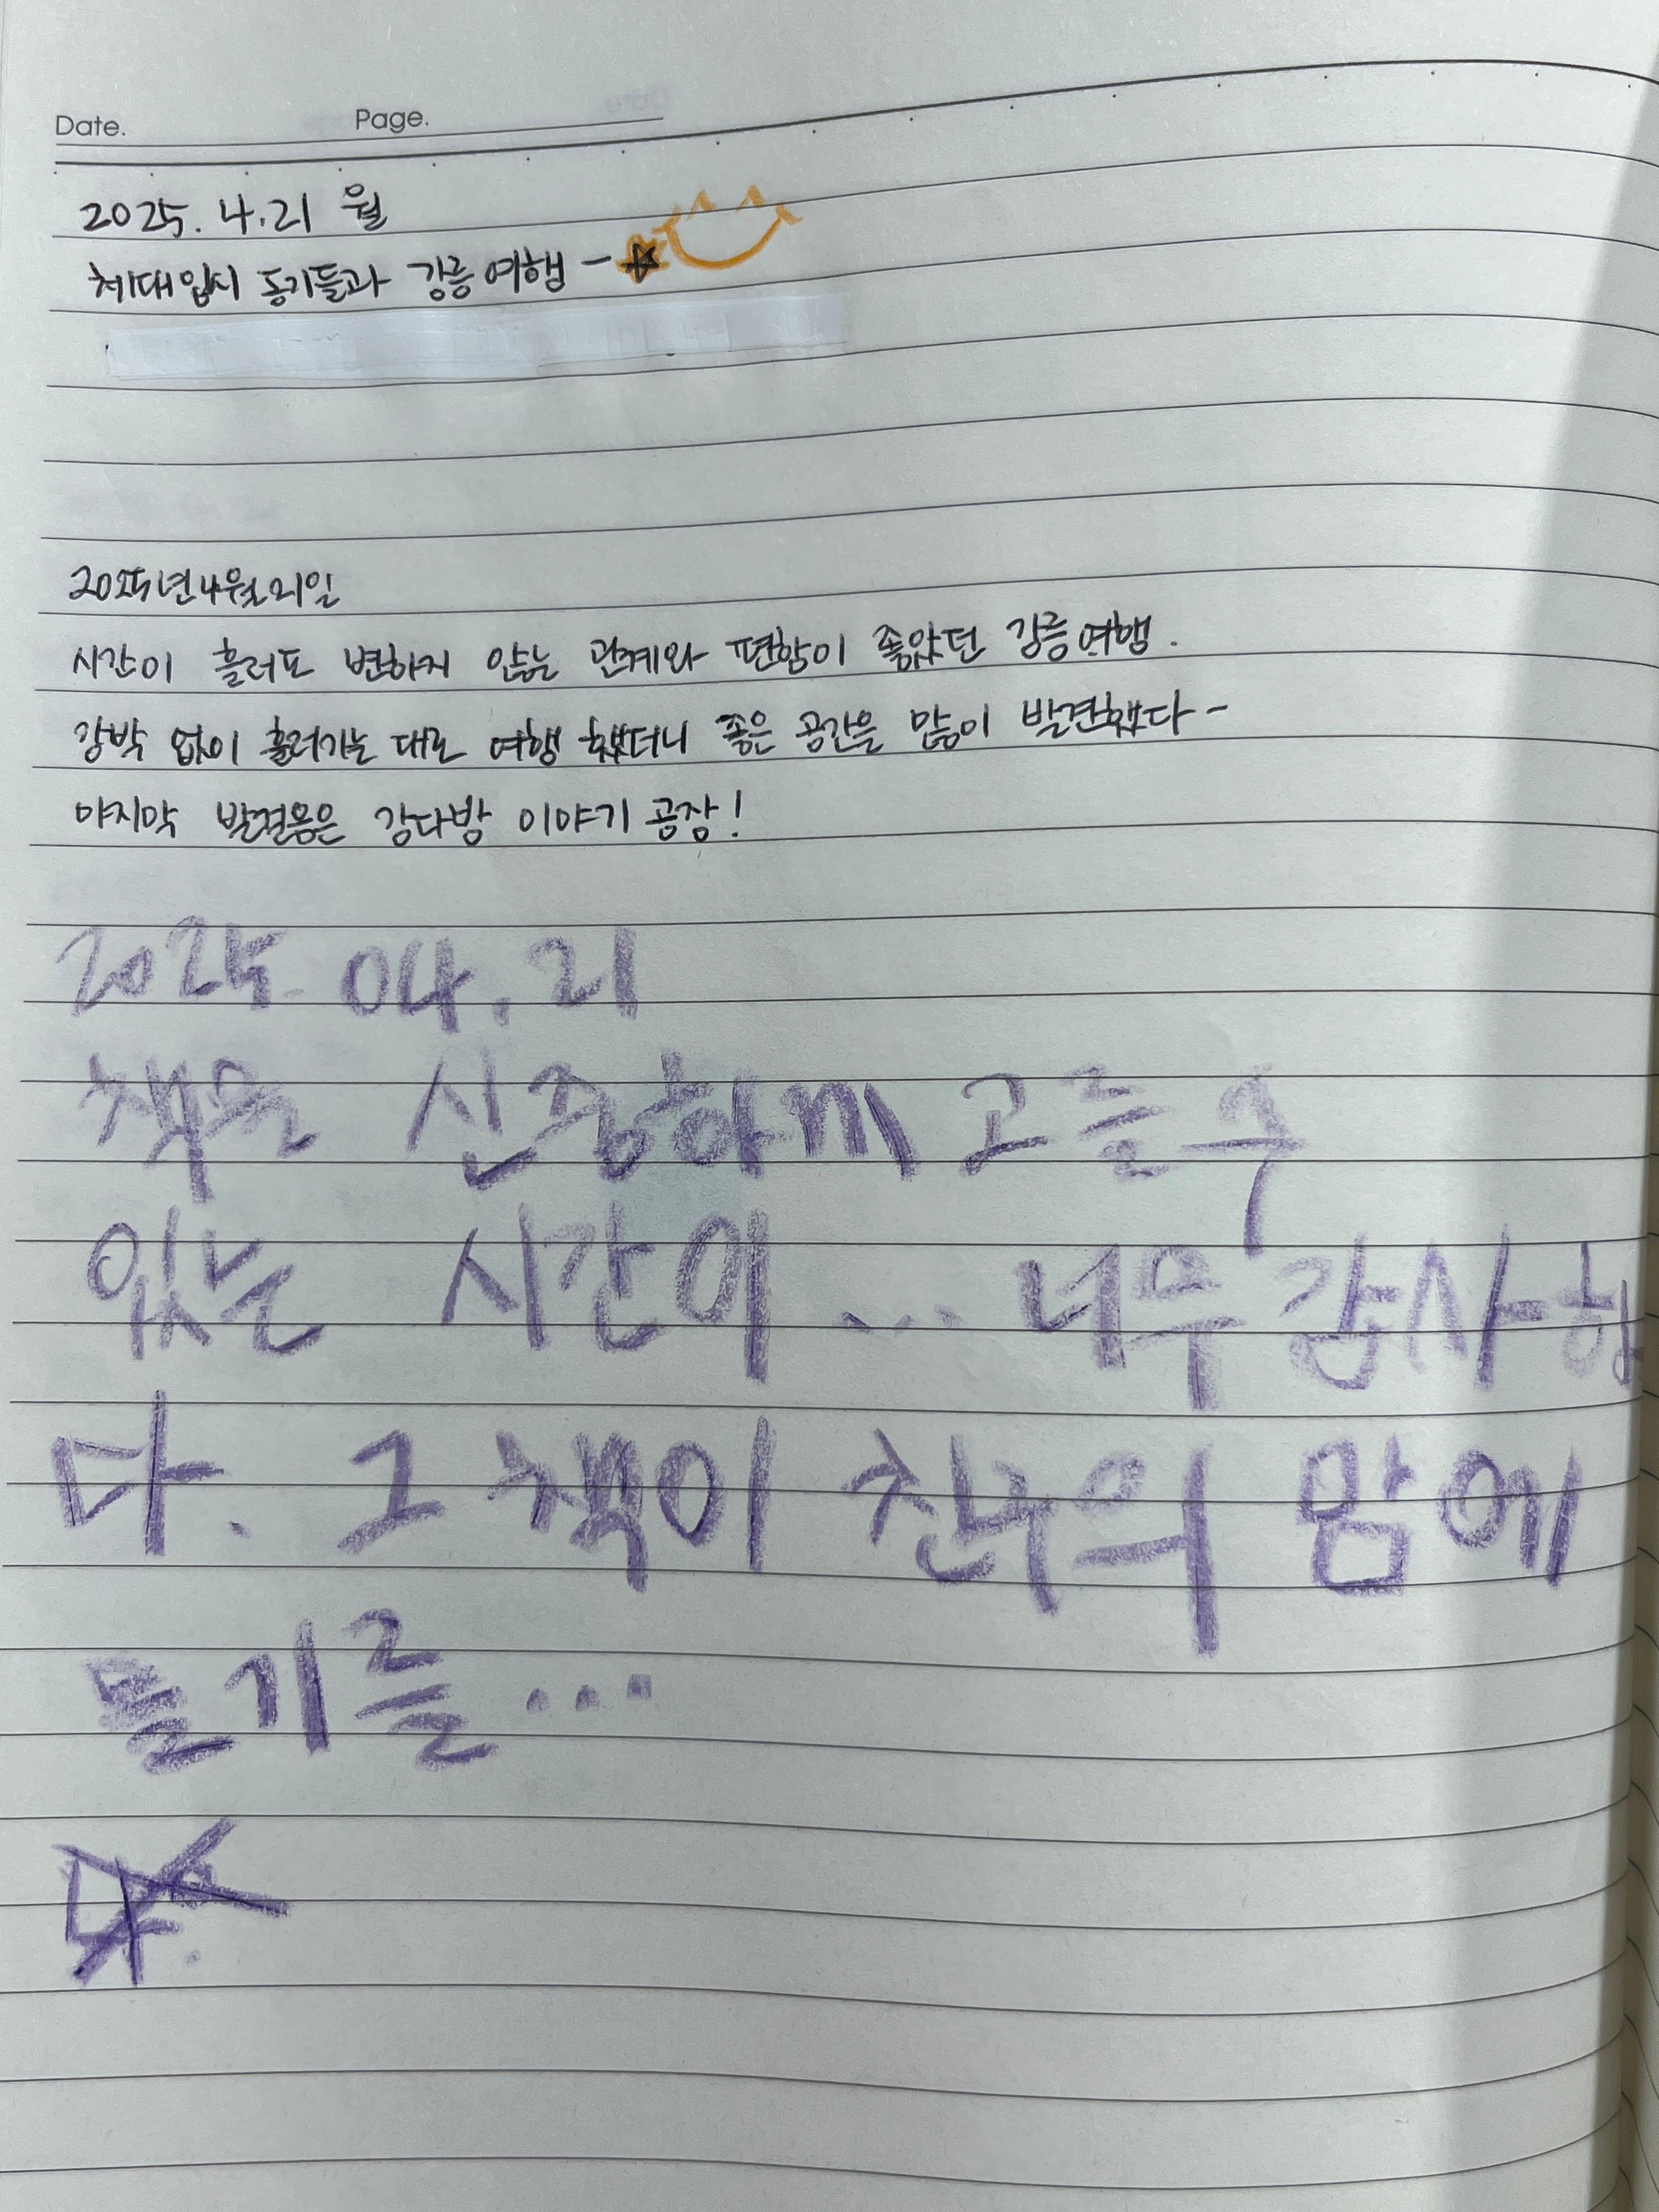 Date. Page.
2025. 4. 21 월
체대입시 동기들과 강릉여행 - ☆
2025년 4월 21일
시간이 흘러도 변하지 않는 관계와 편함이 좋았던 강릉여행.
강박 없이 흘러가는 대로 여행 했더니 좋은 공간을 많이 발견했다-
마지막 발걸음은 강다방 이야기 공장!
2025. 04. 21
책을 신중하게 고를 수
있는 시간이... 너무 감사하
다. 그 책이 친구의 맘에
들기를...